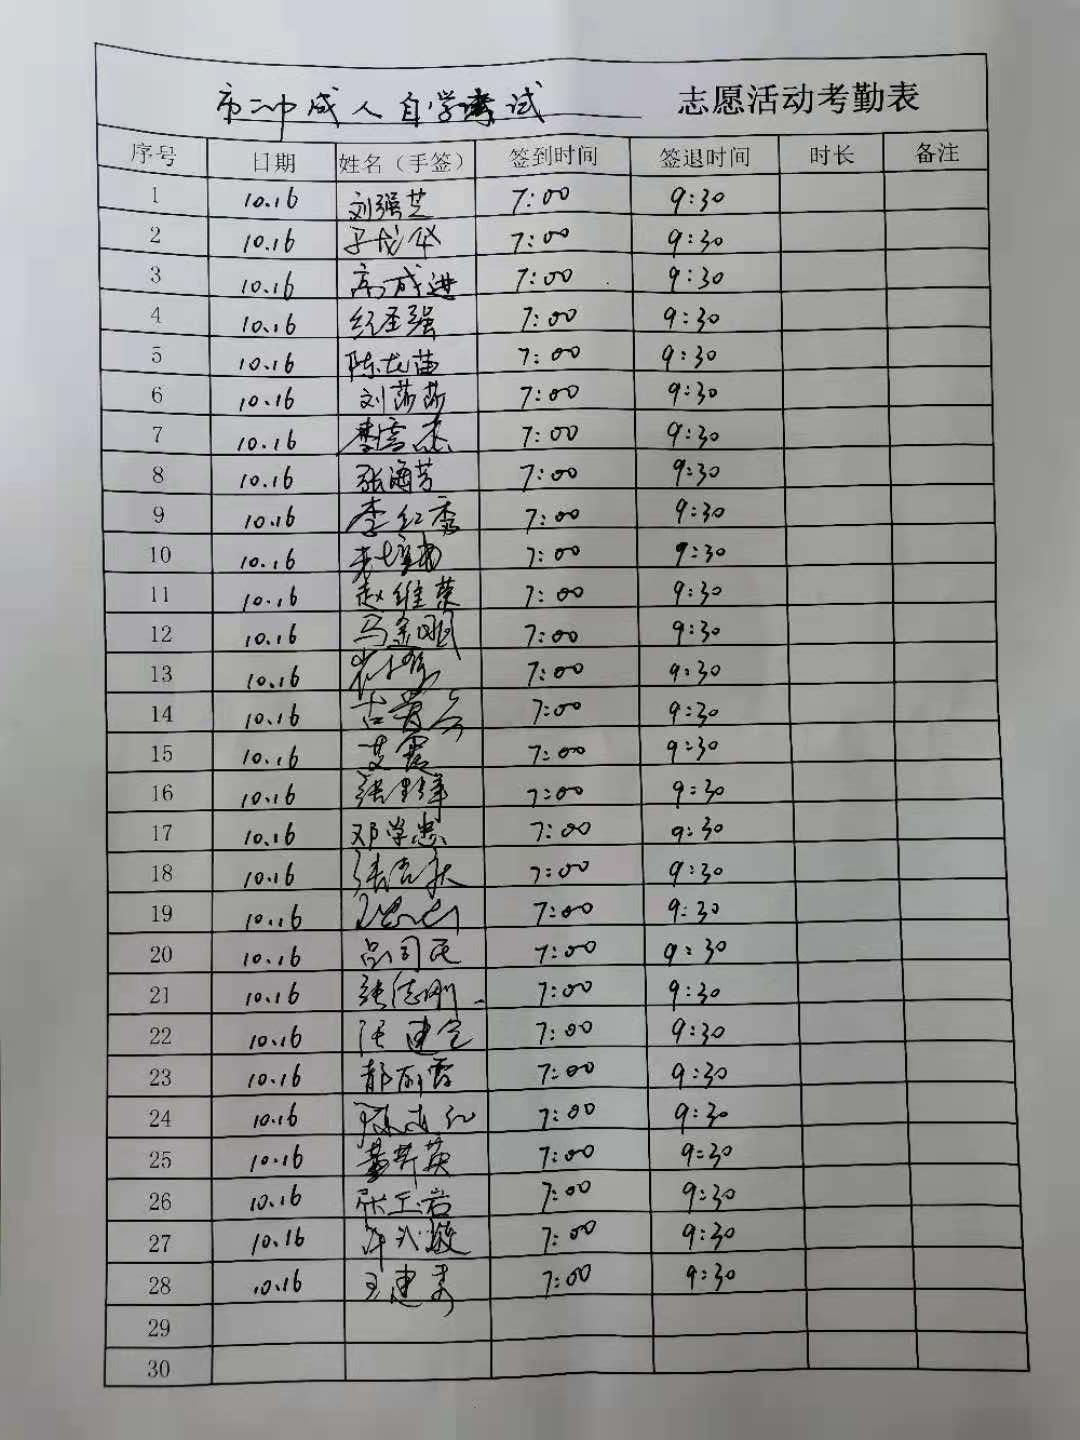 市二中成人自学考试 志愿活动考勤表
序号 日期 姓名（手签） 签到时间 签退时间 时长 备注
1 10.16 刘强芝 7:00 9:30
2 10.16 7:00 9:30
3 10.16 高成进 7:00 9:30
4 10.16 纪圣强 7:00 9:30
5 10.16 陈龙苗 7:00 9:30
6 10.16 刘莎莎 7:00 9:30
7 10.16 李雪杰 7:00 9:30
8 10.16 张海芳 7:00 9:30
9 10.16 李红秀 7:00 9:30
10 10.16 7:00 9:30
11 10.16 赵维荣 7:00 9:30
12 10.16 马金刚 7:00 9:30
13 10.16 7:00 9:30
14 10.16 7:00 9:30
15 10.16 艾霞 7:00 9:30
16 10.16 7:00 9:30
17 10.16 邓学忠 7:00 9:30
18 10.16 7:00 9:30
19 10.16 7:00 9:30
20 10.16 吕司民 7:00 9:30
21 10.16 张德刚 7:00 9:30
22 10.16 7:00 9:30
23 10.16 郝丽霞 7:00 9:30
24 10.16 7:00 9:30
25 10.16 7:00 9:30
26 10.16 张玉岩 7:00 9:30
27 10.16 7:00 9:30
28 10.16 王建秀 7:00 9:30
29
30